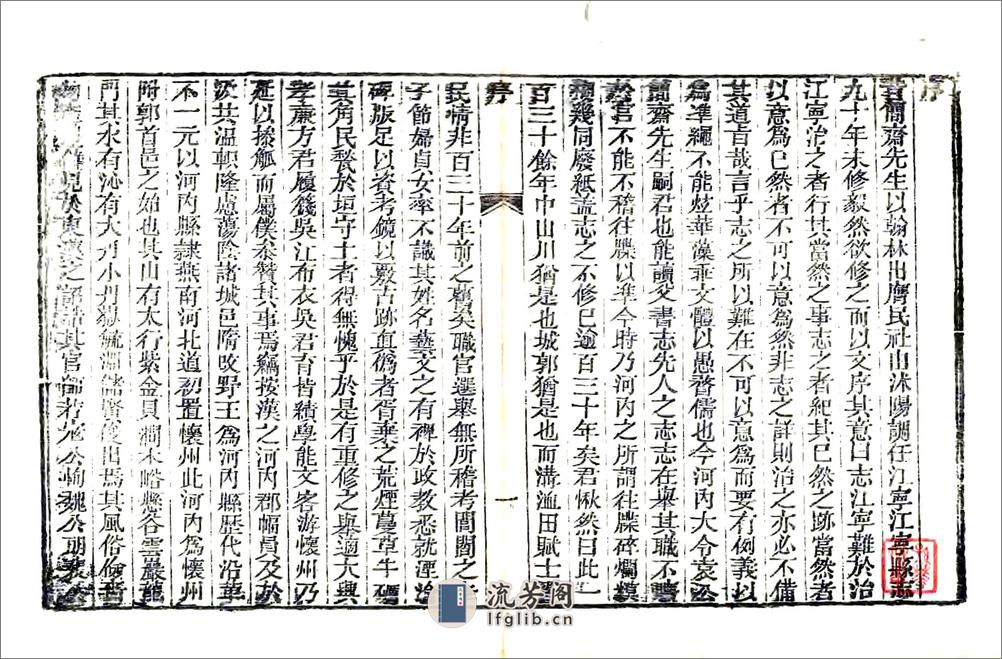 序
昔簡齋先生以翰林出膺民社由沭陽調任江寧江寧縣志
九十年未修毅然欲修之而以文序其意曰志江寧難於治
江寧治之者行其當然之事志之者紀其已然之跡當然者
以意為已然者不可以意為然非志之詳則治之亦必不備
其道旨哉言乎志之所以難在不可以意為而要有例義以
為準繩不能炫華藻乖文體以愚瞀儒也今河內大令袁公
簡齋先生嗣君也能讀父書志先人之志志在舉其職不
者官不能不稽往牒以準今時乃河內之所謂往牒碎爛
幾同廢紙蓋志之不修已逾百三十年矣君愀然曰此一
百三十餘年中山川猶是也城郭猶是也而溝洫田賦士
序
一
民情非百三十年前之舊矣職官選舉無所稽考閭閻之
子節婦貞女率不識其姓名藝文之有裨於政教悉就湮
碑版足以資考鏡以覈古跡真偽者胥棄之荒煙蔓草牛礪
其角民甃於垣守土者得無愧乎於是有重修之舉適大興
孝廉方君履籛吳江布衣吳君育皆績學能文客游懷州乃
延以操觚而屬僕參贊其事焉竊按漢之河內郡幅員及於
汲共溫軹隆慮蕩陰諸城邑隋改野王為河內縣歷代沿革
不一元以河內縣隸燕南河北道初置懷州此河內為懷州
附郭首邑之始也其山有太行紫金貝澗木峪懸谷雲巖龍
門其水有沁有大丹小丹嶽毓淵儲賢俊出焉其風俗儉嗇
之官
流芳閣
lfglib.cn